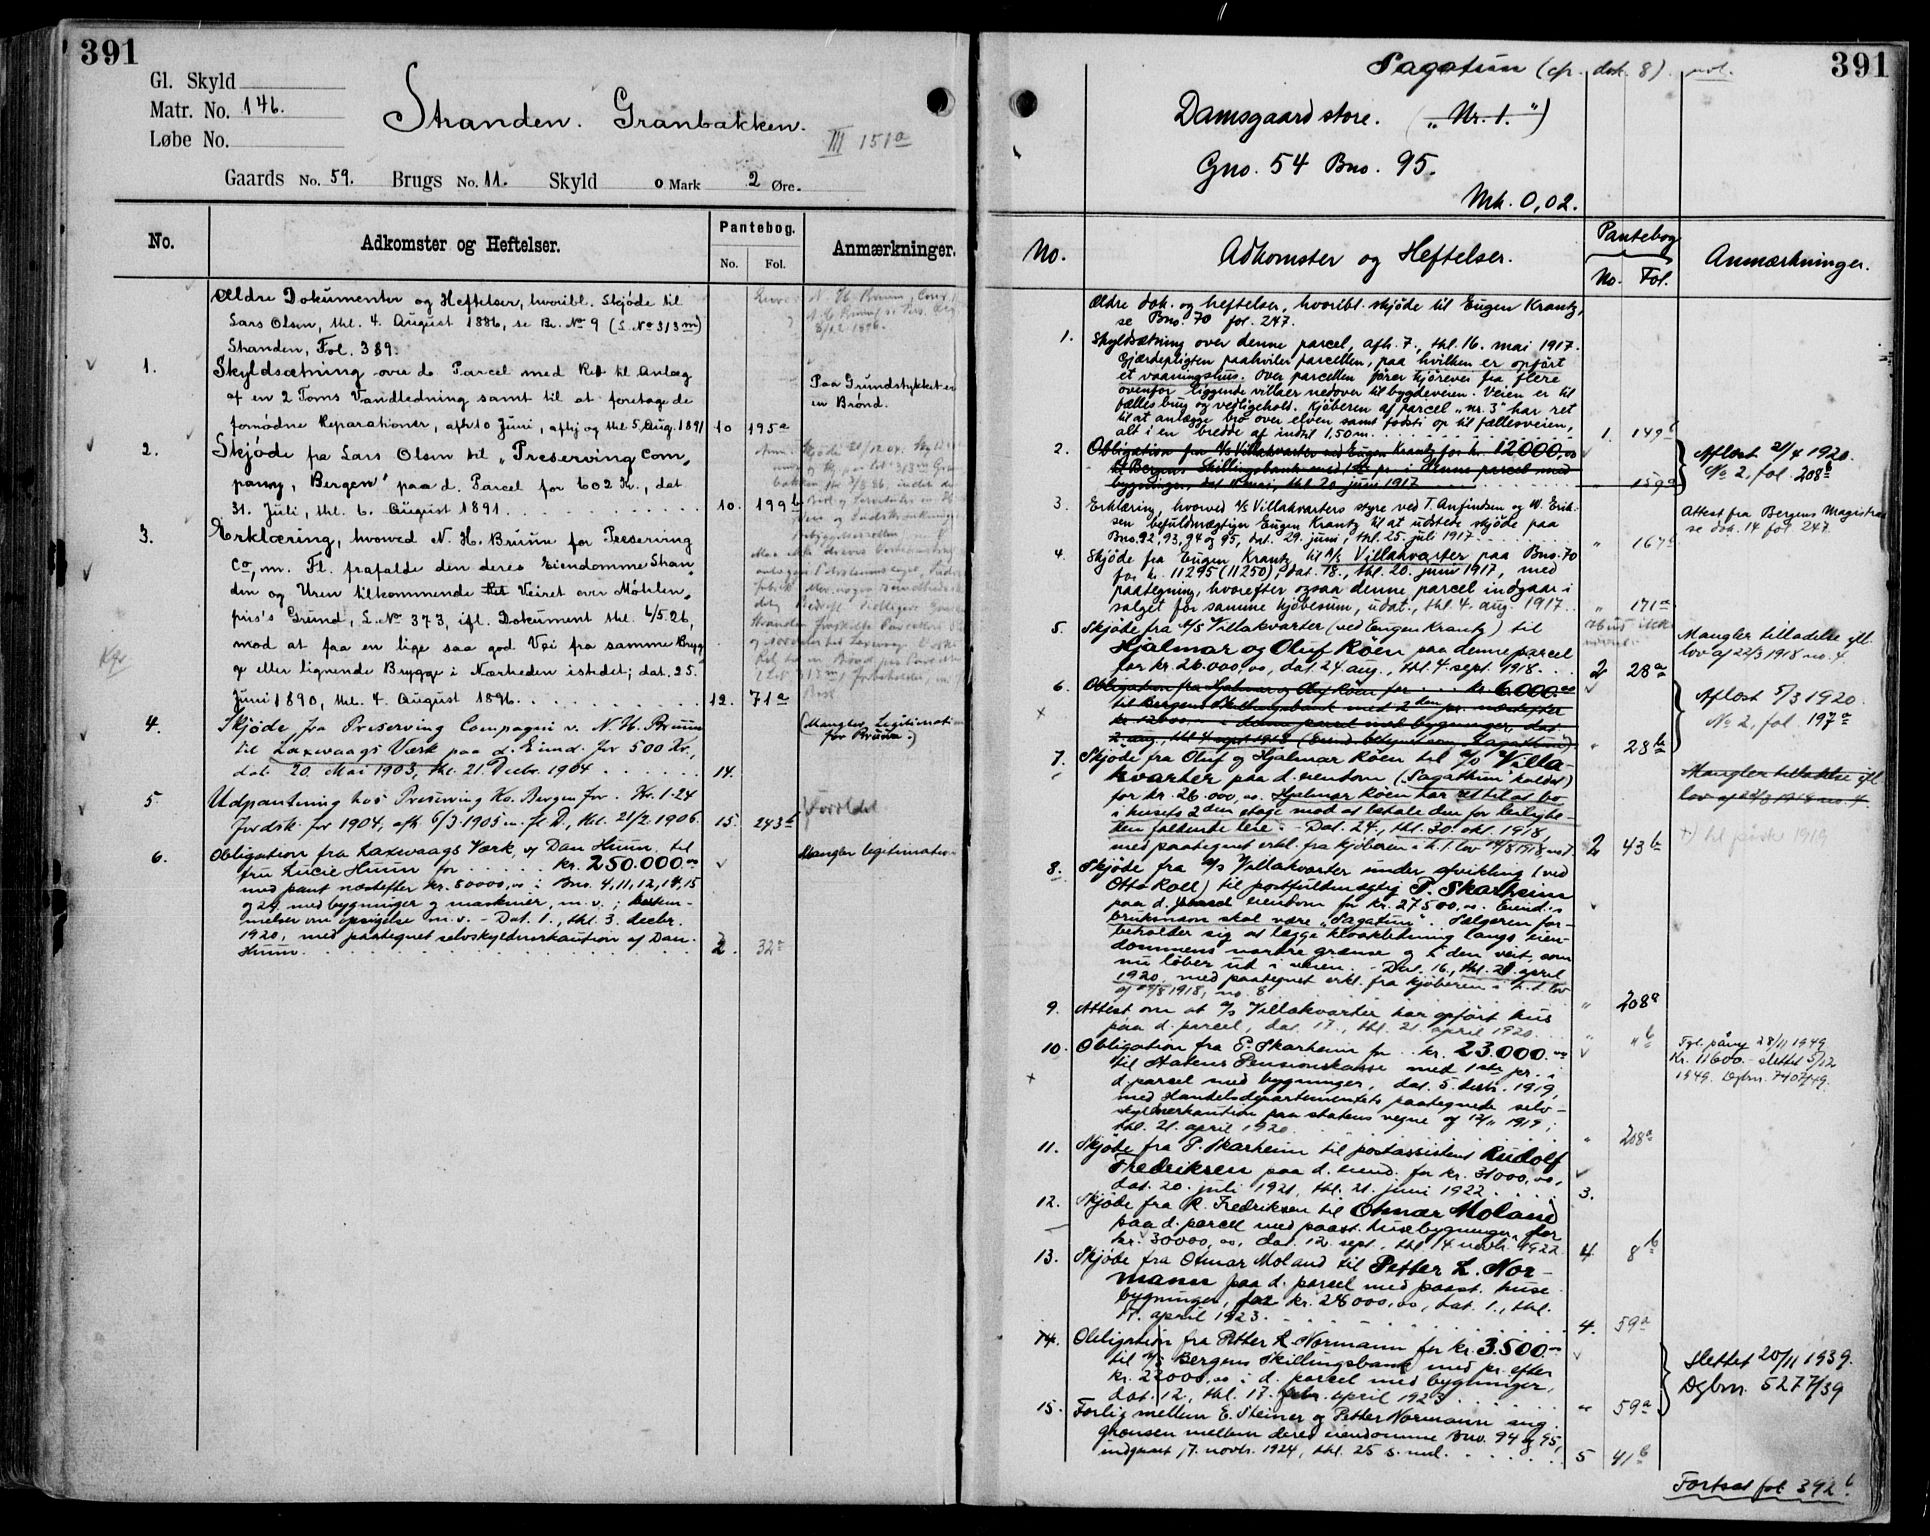 391
Gl. Skyld
Matr. No. 146.
Løbe No.
Stranden. Granbakken.
III 151a
Gaards No. 59. Brugs No. 11. Skyld 0 Mark 2 Øre.
No. Adkomster og Heftelser. Pantebog. No. Fol. Anmærkninger.
Ældre Dokumenter og Heftelser, hvoribl. Skjøde til
Lars Olsen, thl. 4. August 1886, se Br. No 9 (L. No 313m)
Stranden, Fol. 389.
1. Skyldsætning over d. Parcel med Ret til Anlæg
af en 2 Toms Vandledning samt til at foretage de
fornødne Reparationer, afh. 10 Juni, afhj og thl 5 Aug. 1891 10 195a
Paa Grundstykket er
en Brønd.
2. Skjøde fra Lars Olsen til "Preserving Com-
pany, Bergen" paa d. Parcel for 602 Kr., dat
31. Juli, thl. 6. August 1891. 10. 199b
3. Erklæring, hvorved N. H. Bruun for Preserving
Co, m. Fl. frafalde den deres Eiendomme Stran-
den og Uren tilkommende Ret Veiret over Møhlen-
pris's Grund, L. No 373, ifl. Dokument thl. 6/5 26,
mod at faa en lige saa god Vei fra samme Bryg-
ge eller lignende Brygge i Nærheden istedet; dat. 25.
Juni 1890, thl. 4. August 1896. 12. 71a
4. Skjøde, fra Preserving Compagni v. N. H. Bruun
til Laxevaags Værk paa d. Eiend. for 500 Kr.,
dat. 20. Mai 1903, thl. 21. Decbr. 1904 14.
(Mangler Legitimation
for Bruun.)
5. Udpantning hos Preserving Ko. Bergen for Kr. 1.24
Jordsk. for 1904, afh. 6/3 1905 m. fl. D., thl. 21/2 1906. 15. 243b
Forældet
6. Obligation fra Laxevaags Værk, v/ Dan Huun, til
fru Lucie Huun for kr. 250.000.00
med pant næstefter kr. 80000,00 i Bno. 4, 11, 12, 14, 15
og 24 med bygninger og maskiner, m. v.; bestem-
melser om opsigelse m. v. - Dat. 1., thl. 3. decbr.
1920, med paategnet selvskyldnerkaution af Dan
Huun. 2. 32a
Mangler legitimation
391
Sagatun (cfr. dok. 8)
Damsgaard store. ("Nr. 1.")
Gno. 54 Bno. 95.
Mk. 0,02.
No. Adkomster og Heftelser. Pantebog No. Fol. Anmærkninger.
Ældre dok. og heftelser, hvoribl. skjøde til Eugen Krantz,
se Bno. 70 fol. 247.
1. Skyldsætning over denne parcel, afh. 7., thl. 16. mai 1917.
Gjærdepligten paahviler parcellen, paa hvilken er opført
et vaaningshus. Over parcellen fører kjørevei fra flere
ovenfor liggende villaer nedover til bygdeveien. Veien er til
fælles brug og vedligehold. Kjøberen af parcel "nr. 3" har ret
til at anlægge bro over elven samt fodsti op til fællesveien,
alt i en bredde af indtil 1,50 m. 1. 149b
2. Obligation fra A/S Villakvarter ved Eugen Krantz for kr. 12000,00
til Bergens Skillingsbank med 1ste pr. i denne parcel med
bygninger, dat. 11 mai, thl. 20. juni 1917 " 159a
Aflæst 21/4 1920.
No 2, fol. 208b
3. Erklæring, hvorved A/S Villakvarters styre ved T. Anfindsen og W. Erik-
sen befuldmægtiger Eugen Krantz til at udstede skjøde paa
Bno. 92, 93, 94 og 95, dat. 29. juni, thl. 25. juli 1917 " 167b
Attest fra Bergens Magistrat
se dok. 14 fol 247.
4. Skjøde fra Eugen Krantz til A/S Villakvarter paa Bno. 70
for kr. 11295 (11250), dat. 18., thl. 20. juni 1917, med
paategning, hvorefter ogsaa denne parcel indgaar i
salget for samme kjøbesum, udat., thl. 4. aug. 1917. " 171a
5. Skjøde fra A/S Villakvarter (ved Eugen Krantz) til
Hjalmar og Oluf Røen paa denne parcel
for kr. 26.000,00, dat. 24. aug., thl. 4. sept. 1918. 2 28a
Mangler tilladelse efl.
lov af 22/3 1918 no. 4.
6. Obligation fra Hjalmar og Oluf Røen for kr. 6000.00
til Bergens Skillingsbank med 2den pr. næstefter
kr. 12000.- i denne parcel med bygninger, dat.
2. aug., thl. 4 sept 1918 (Eiend. betegnet som Sagathun) " 28b
Aflæst 5/3 1920.
No 2, fol. 197a
7. Skjøde fra Oluf og Hjalmar Røen til A/S Villa-
kvarter paa d. eiendom ("Sagathun" kaldet)
for kr. 26.000,00. Hjalmar Røen har ret til at bo
i husets 2den etage mod at betale den for leilighe-
den faldende leie. - Dat. 24., thl. 30. okt. 1918,
med paategnet erkl. fra kjøberen i h. t. lov 14/8 1918 no 7. 2 43b
Mangler tilladelse efl.
lov af 22/3 1918 no. 4.
8. Skjøde fra A/S Villakvarter under afvikling (ved
Otto Roll) til postfuldmægtig P. Skarheim
paa d. parcel eiendom for kr. 27500,00. Eiend.s
bruksnavn skal være "Sagatun". Sælgeren for-
beholder sig at lægge kloakledning langs eien-
dommens nordre grænse og i den veit, som
nu løber ut i veien. - Dat. 16., thl. 21. april
1920, med paategnet erkl. fra kjøberen i h. t. lov
af 14/8 1918, no. 8 " 208a
9. Attest om at A/S Villakvarter har opført hus
paa d. parcel, dat. 17., thl. 21. april 1920. " "b
10. Obligation fra P. Skarheim for kr. 23.000.00
til Statens Pensionskasse med 1ste pr. i
d. parcel med bygninger, dat. 5. decbr. 1919,
med Handelsdepartementets paategnede selv-
skyldnerkaution paa statens vegne af 12/11 1919;
thl. 21. april 1920. " 208a
28/11 1949
Kr. 11600.- slettet 5/12
1949. Dgbnr. 7407/49.
11. Skjøde fra P. Skarheim til postassistent Rudolf
Fredriksen paa d. eiend. for kr. 31000,00,
dat. 20. juli 1921, thl. 21. juni 1922 3.
12. Skjøde fra R. Fredriksen til Otmar Moland
paa d. parcel med paast. husebygninger for
kr. 30000,00, dat. 12. sept., thl. 14 novbr. 1922 4. 8b
13. Skjøde fra Otmar Moland til Petter L. Nor-
mann paa d. parcel med paast. huse
bygninger, for kr. 28000,00, dat. 1., thl.
17. april 1923. 4. 59a
14. Obligation fra Petter L. Normann for kr. 3.500.-
til A/S Bergens Skillingsbank med pr. efter
kr. 22000,00 i d. parcel med bygninger,
dat. 12, thl. 17. april 1923 " 59a
Slettet 20/11 1939.
Dgbnr. 5277/39
15. Forlig mellem E. Steiner og Petter Normann ang.
grænsen mellem deres eiendomme Bno. 94 og 95,
indgaaet 17. novbr. 1924, thl. 25 s. md. 5 41b
Fortsat fol 392b